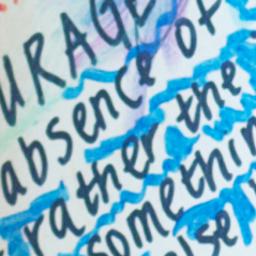 URAGE
absence of
rather the
somethin
lse